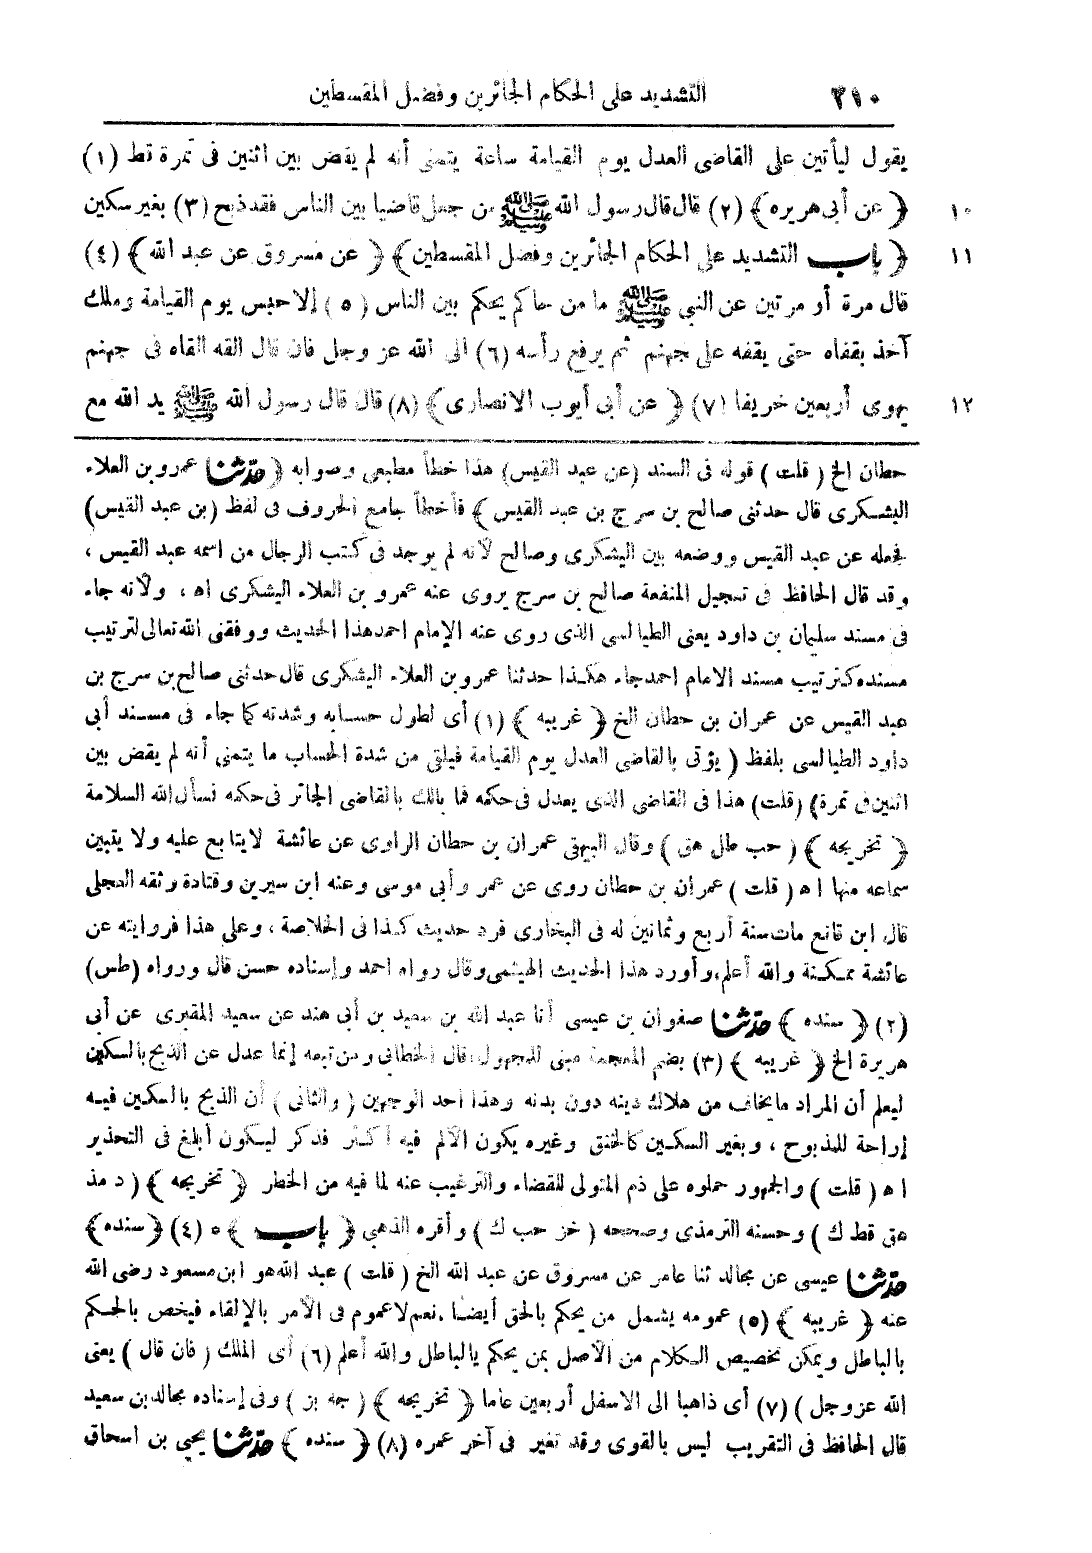 ٢١٠ التشديد على الحكام الجائرين وفضل المقسطين
يقول ليأتين على القاضى العدل يوم القيامة ساعة يتمنى أنه لم يقض بين اثنين فى تمرة قط (١)
١٠ ﴿ عن أبى هريره ﴾ (٢) قال قال رسول الله ﷺ من جعل قاضيا بين الناس فقد ذبح (٣) بغير سكين
١١ ﴿ باب التشديد على الحكام الجائرين وفضل المقسطين ﴾ ﴿ عن مسروق عن عبد الله ﴾ (٤)
قال مرة أو مرتين عن النبي ﷺ ما من حاكم يحكم بين الناس (٥) إلا حبس يوم القيامة وملك
آخذ بقفاه حتى يقفه على جهنم ثم يرفع رأسه (٦) الى الله عز وجل فان قال القه القاه فى جهنم
١٢ يهوى أربعين خريفا (٧) ﴿ عن أبى أيوب الانصارى ﴾ (٨) قال قال رسول الله ﷺ يد الله مع
حطان الخ ( قلت ) قوله فى السند (عن عبد القيس) هذا خطأ مطبعى وصوابه ﴿ حدّثنا عمرو بن العلاء
اليشكرى قال حدثنى صالح بن سرج بن عبد القيس ﴾ فأخطأ جامع الحروف فى لفظ (بن عبد القيس)
فجعله عن عبد القيس ووضعه بين اليشكرى وصالح لأنه لم يوجد فى كتب الرجال من اسمه عبد القيس ،
وقد قال الحافظ فى تعجيل المنفعة صالح بن سرج يروى عنه عمرو بن العلاء اليشكرى اه ، ولأنه جاء
فى مسند سليمان بن داود يعنى الطيالسى الذى روى عنه الإمام احمد هذا الحديث ووفقنى الله تعالى لترتيب
مسنده كترتيب مسند الامام احمد جاء هكذا حدثنا عمرو بن العلاء اليشكرى قال حدثنى صالح بن سرج بن
عبد القيس عن عمران بن حطان الخ ﴿ غريبه ﴾ (١) أى لطول حسابه وشدته كما جاء فى مسند أبى
داود الطيالسى بلفظ ( يؤتى بالقاضى العدل يوم القيامة فيلقى من شدة الحساب ما يتمنى أنه لم يقض بين
اثنين فى تمرة) (قلت) هذا فى القاضى الذى يعدل فى حكمه فما بالك بالقاضى الجائر فى حكمه نسأل الله السلامة
﴿ تخريجه ﴾ ( حب طل هق ) وقال البيهقى عمران بن حطان الراوى عن عائشة لايتابع عليه ولا يتبين
سماعه منها اه ( قلت ) عمران بن حطان روى عن عمر وأبي موسى وعنه ابن سيرين وقتادة وثقه العجلى
قال ابن قانع مات سنة أربع وثمانين له فى البخارى فرد حديث كذا فى الخلاصة ، وعلى هذا فروايته عن
عائشة ممكنة والله أعلم، وأورد هذا الحديث الهيثمى وقال رواه احمد وإسناده حسن قال ورواه (طس)
(٢) ﴿ سنده ﴾ حدّثنا صفوان بن عيسى أنا عبد الله بن سعيد بن أبى هند عن سعيد المقبرى عن أبى
هريرة الخ ﴿ غريبه ﴾ (٣) بضم المعجمة مبنى للمجهول، قال الخطابى ومن تبعه إنما عدل عن الذبح بالسكين
ليعلم أن المراد ما يخاف من هلاك دينه دون بدنه وهذا احد الوجهين ( والثانى ) أن الذبح بالسكين فيه
إراحة للمذبوح ، وبغير السكين كالخنق وغيره يكون الألم فيه أكثر فذكر ليكون أبلغ فى التحذير
اه ( قلت ) والجمهور حملوه على ذم المتولى للقضاء والترغيب عنه لما فيه من الخطر ﴿ تخريجه ﴾ ( د مذ
هق قط ك ) وحسنه الترمذى وصححه ( خز حب ك ) وأقره الذهبي ﴿ باب ﴾ ٥ (٤) ﴿ سنده ﴾
حدّثنا عيسى عن مجالد ثنا عامر عن مسروق عن عبد الله الخ ( قلت ) عبد الله هو ابن مسعود رضى الله
عنه ﴿ غريبه ﴾ (٥) عمومه يشمل من يحكم بالحق أيضا . نعم لا عموم فى الأمر بالإلقاء فيخص بالحكم
بالباطل ويمكن تخصيص الكلام من الأصل بمن يحكم بالباطل والله أعلم (٦) أى الملك ( فان قال ) يعنى
الله عز وجل ) (٧) أى ذاهبا الى الاسفل أربعين عاما ﴿ تخريجه ﴾ ( جه بز ) وفى إسناده مجالد بن سعيد
قال الحافظ فى التقريب ليس بالقوى وقد تغير فى آخر عمره (٨) ﴿ سنده ﴾ حدّثنا يحيى بن اسحاق